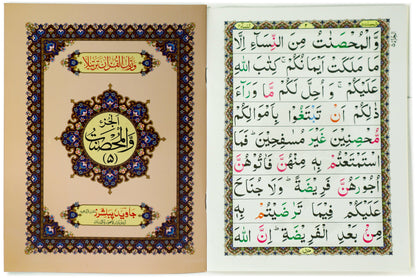 ورتل القرآن ترتيلا
الجزء
والمحصنت
(۵)
وَّالْمُحْصَنٰتُ مِنَ النِّسَآءِ اِلَّا
مَا مَلَكَتْ اَيْمَانُكُمْ ۚ كِتٰبَ اللّٰهِ
عَلَيْكُمْ ۚ وَاُحِلَّ لَكُمْ مَّا وَرَآءَ
ذٰلِكُمْ اَنْ تَبْتَغُوْا بِاَمْوَالِكُمْ
مُّحْصِنِيْنَ غَيْرَ مُسٰفِحِيْنَ ؕ فَمَا
اسْتَمْتَعْتُمْ بِهٖ مِنْهُنَّ فَاٰتُوْهُنَّ
اُجُوْرَهُنَّ فَرِيْضَةً ؕ وَلَا جُنَاحَ
عَلَيْكُمْ فِيْمَا تَرٰضَيْتُمْ بِهٖ
مِنْۢ بَعْدِ الْفَرِيْضَةِ ؕ اِنَّ اللّٰهَ